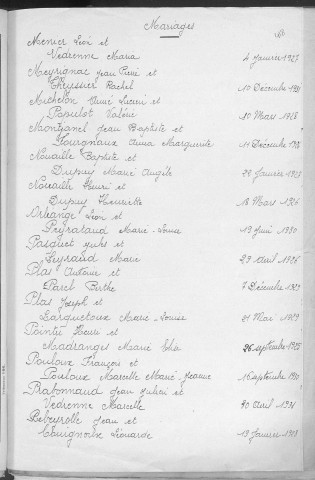 Mariages
Menier Léon et
Vedrenne Maria 4 Janvier 1927
Meyrignac Jean Pierre et
Cheyssier Rachel 10 Décembre
Michelon Aimé Lucien et
Populot Valérie 10 Mars 1928
Montjanel Jean Baptiste et
Fourgnaux Anna Marguerite 11 Décembre
Nouaille Baptiste et
Dupuy Marie Angèle Janvier
Nouaille Henri et
Dupuy Henriette 18 Mars 1926
Orliange Léon et
Peyrataud Marie-Louise 19 Juin 1930
Pasquet Jules et
Leyraud Marie 29 Avril 1926
Plas Antoine et
Parel Berthe 7 Décembre 1929
Plas Joseph et
Larquetoux Marie-Louise 21 Mai 1929
Pointu Henri et
Madranges Marie 26 septembre 1925
Pouloux François et
Pouloux Marcelle Marie-Jeanne 16 septembre
Prabonnaud Jean Julien et
Vedrenne Marcelle 20 Avril 1931
Bebeyrolle Jean et
Couignoux Léonarde 19 Janvier